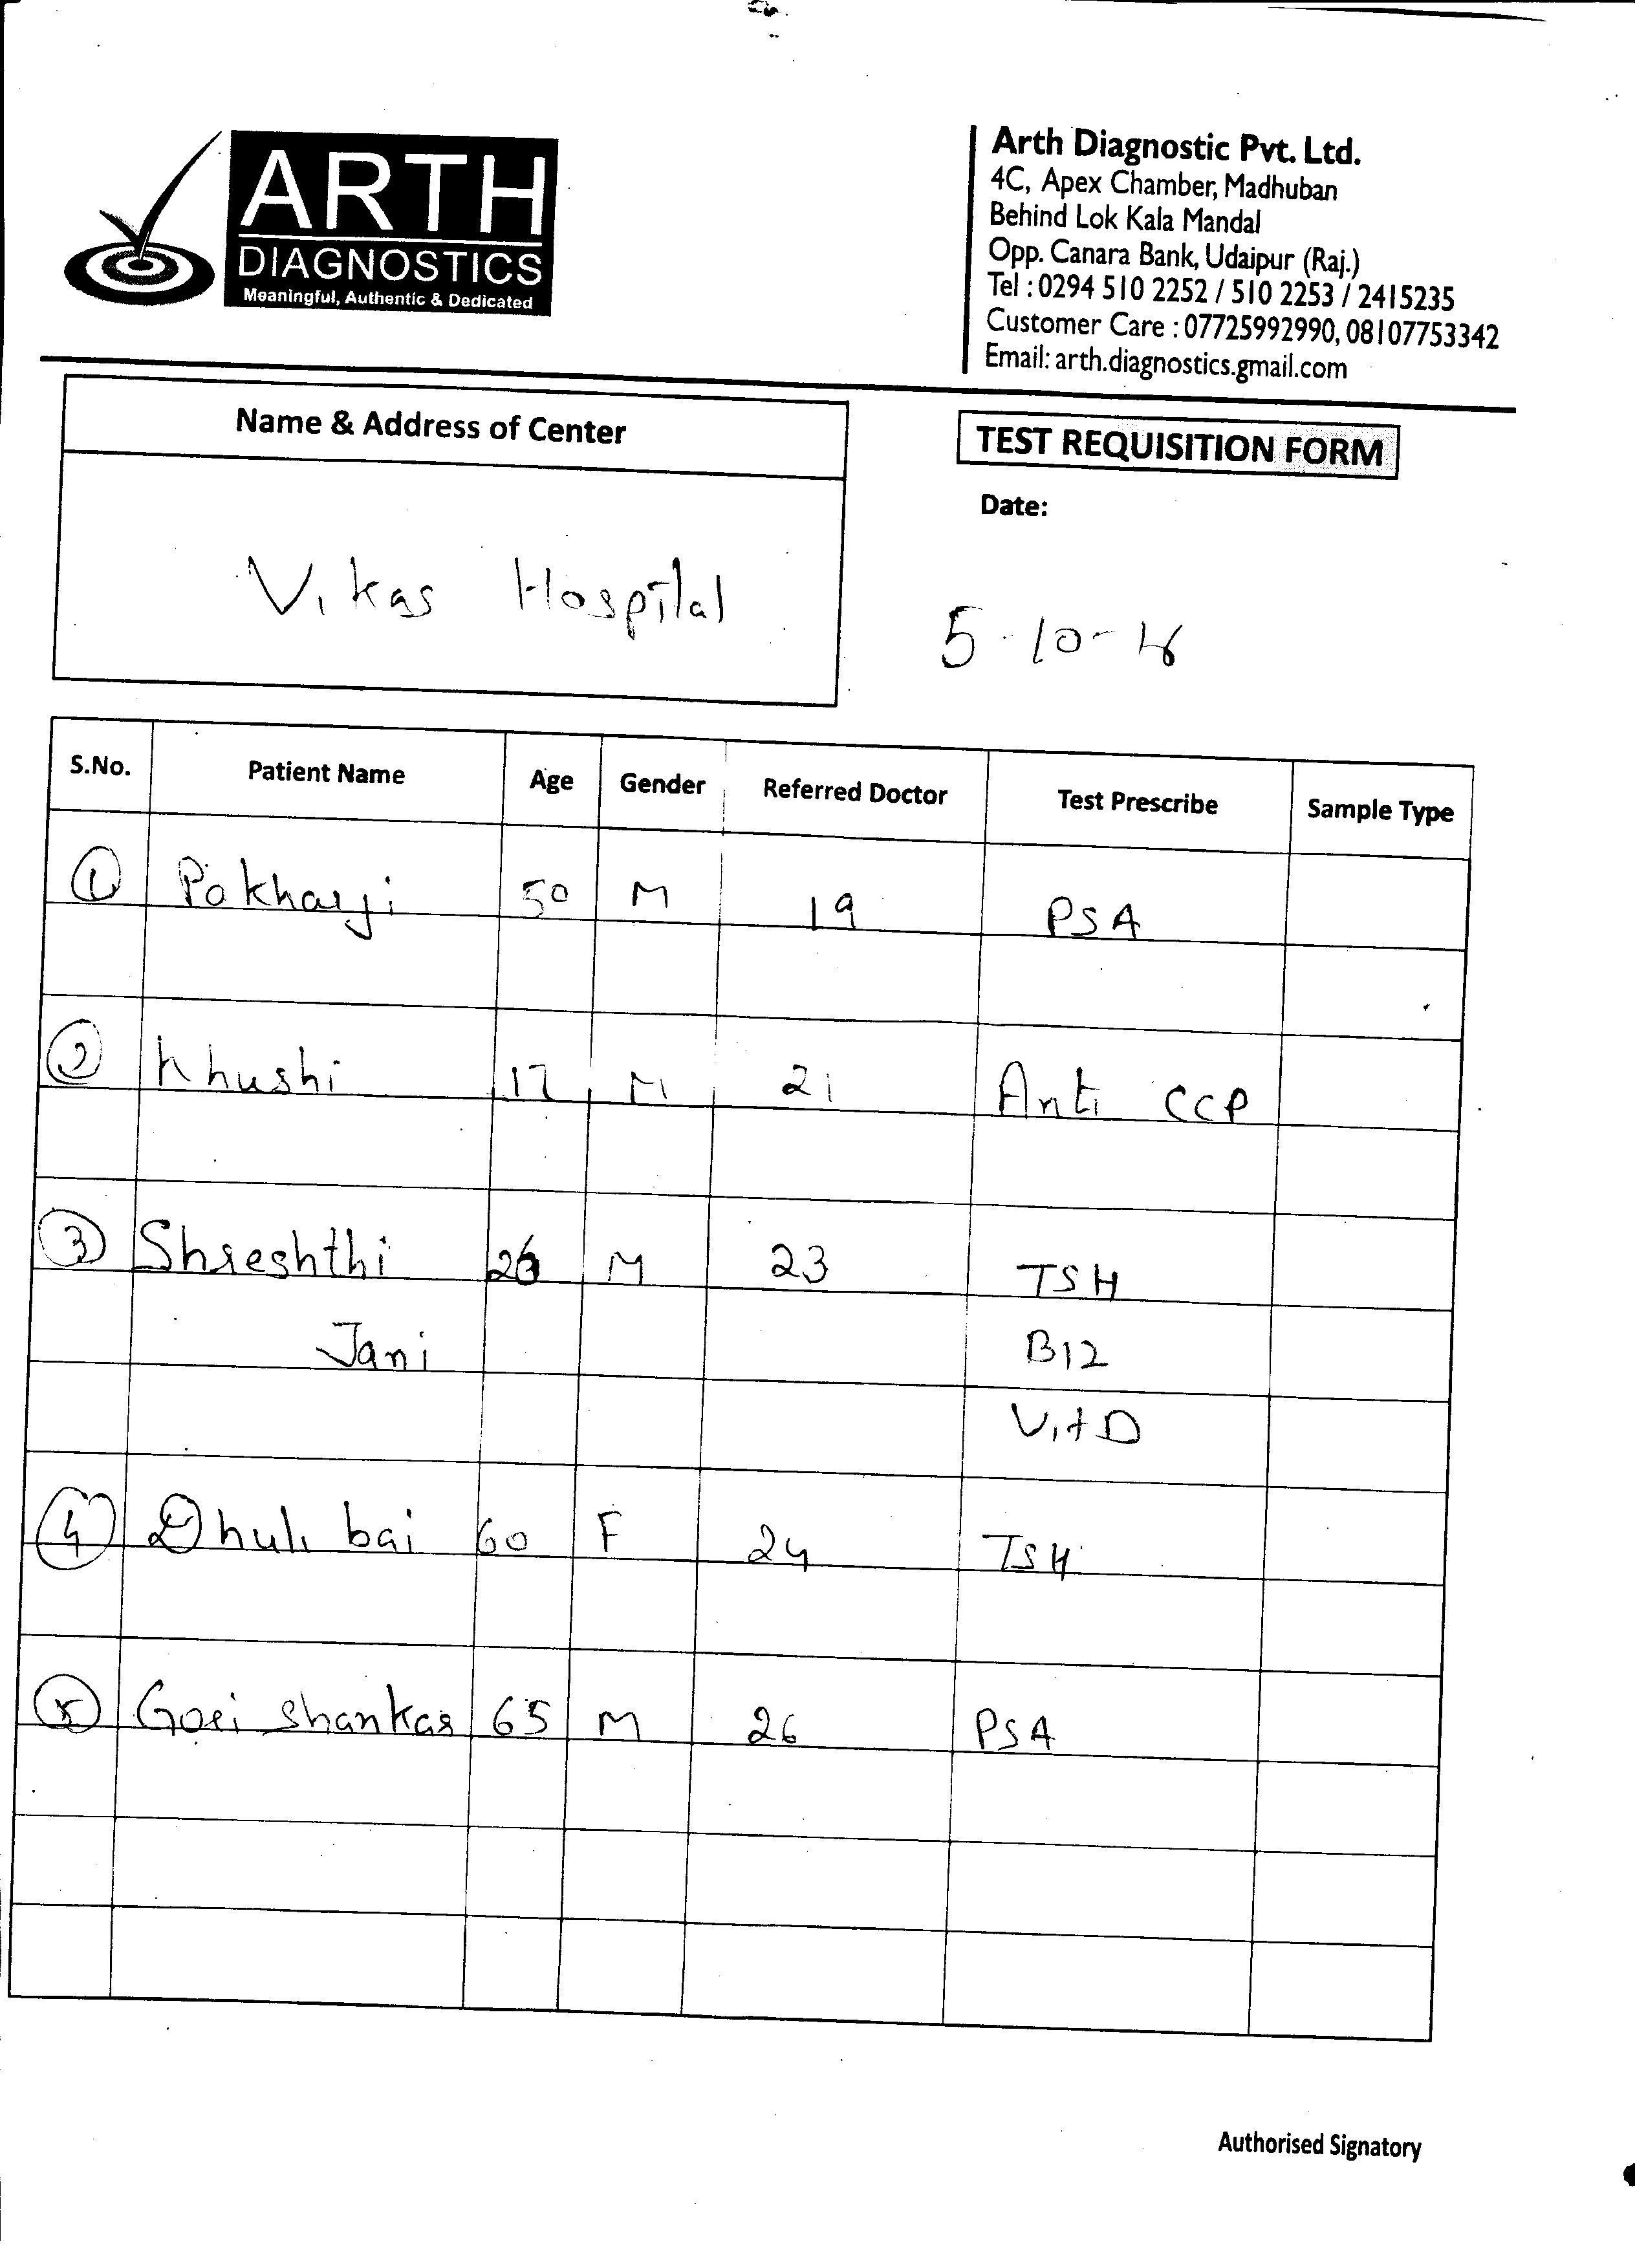 ARTH
DIAGNOSTICS
Meaningful, Authentic & Dedicated
Arth Diagnostic Pvt. Ltd.
4C, Apex Chamber, Madhuban
Behind Lok Kala Mandal
Opp. Canara Bank, Udaipur (Raj.)
Tel : 0294 510 2252 / 510 2253 / 2415235
Customer Care : 07725992990, 08107753342
Email: arth.diagnostics.gmail.com
Name & Address of Center
TEST REQUISITION FORM
Date:
Vikas Hospital
5-10-
S.No. Patient Name Age Gender Referred Doctor Test Prescribe Sample Type
1 Pokharji 50 M 19 PSA
2 Khushi 17 M 21 Anti CCP
3 Shreshthi 26 M 23 TSH
Jani B12
Vit D
4 Dhuli bai 60 F 24 TSH
5 Gori shankar 65 M 26 PSA
Authorised Signatory